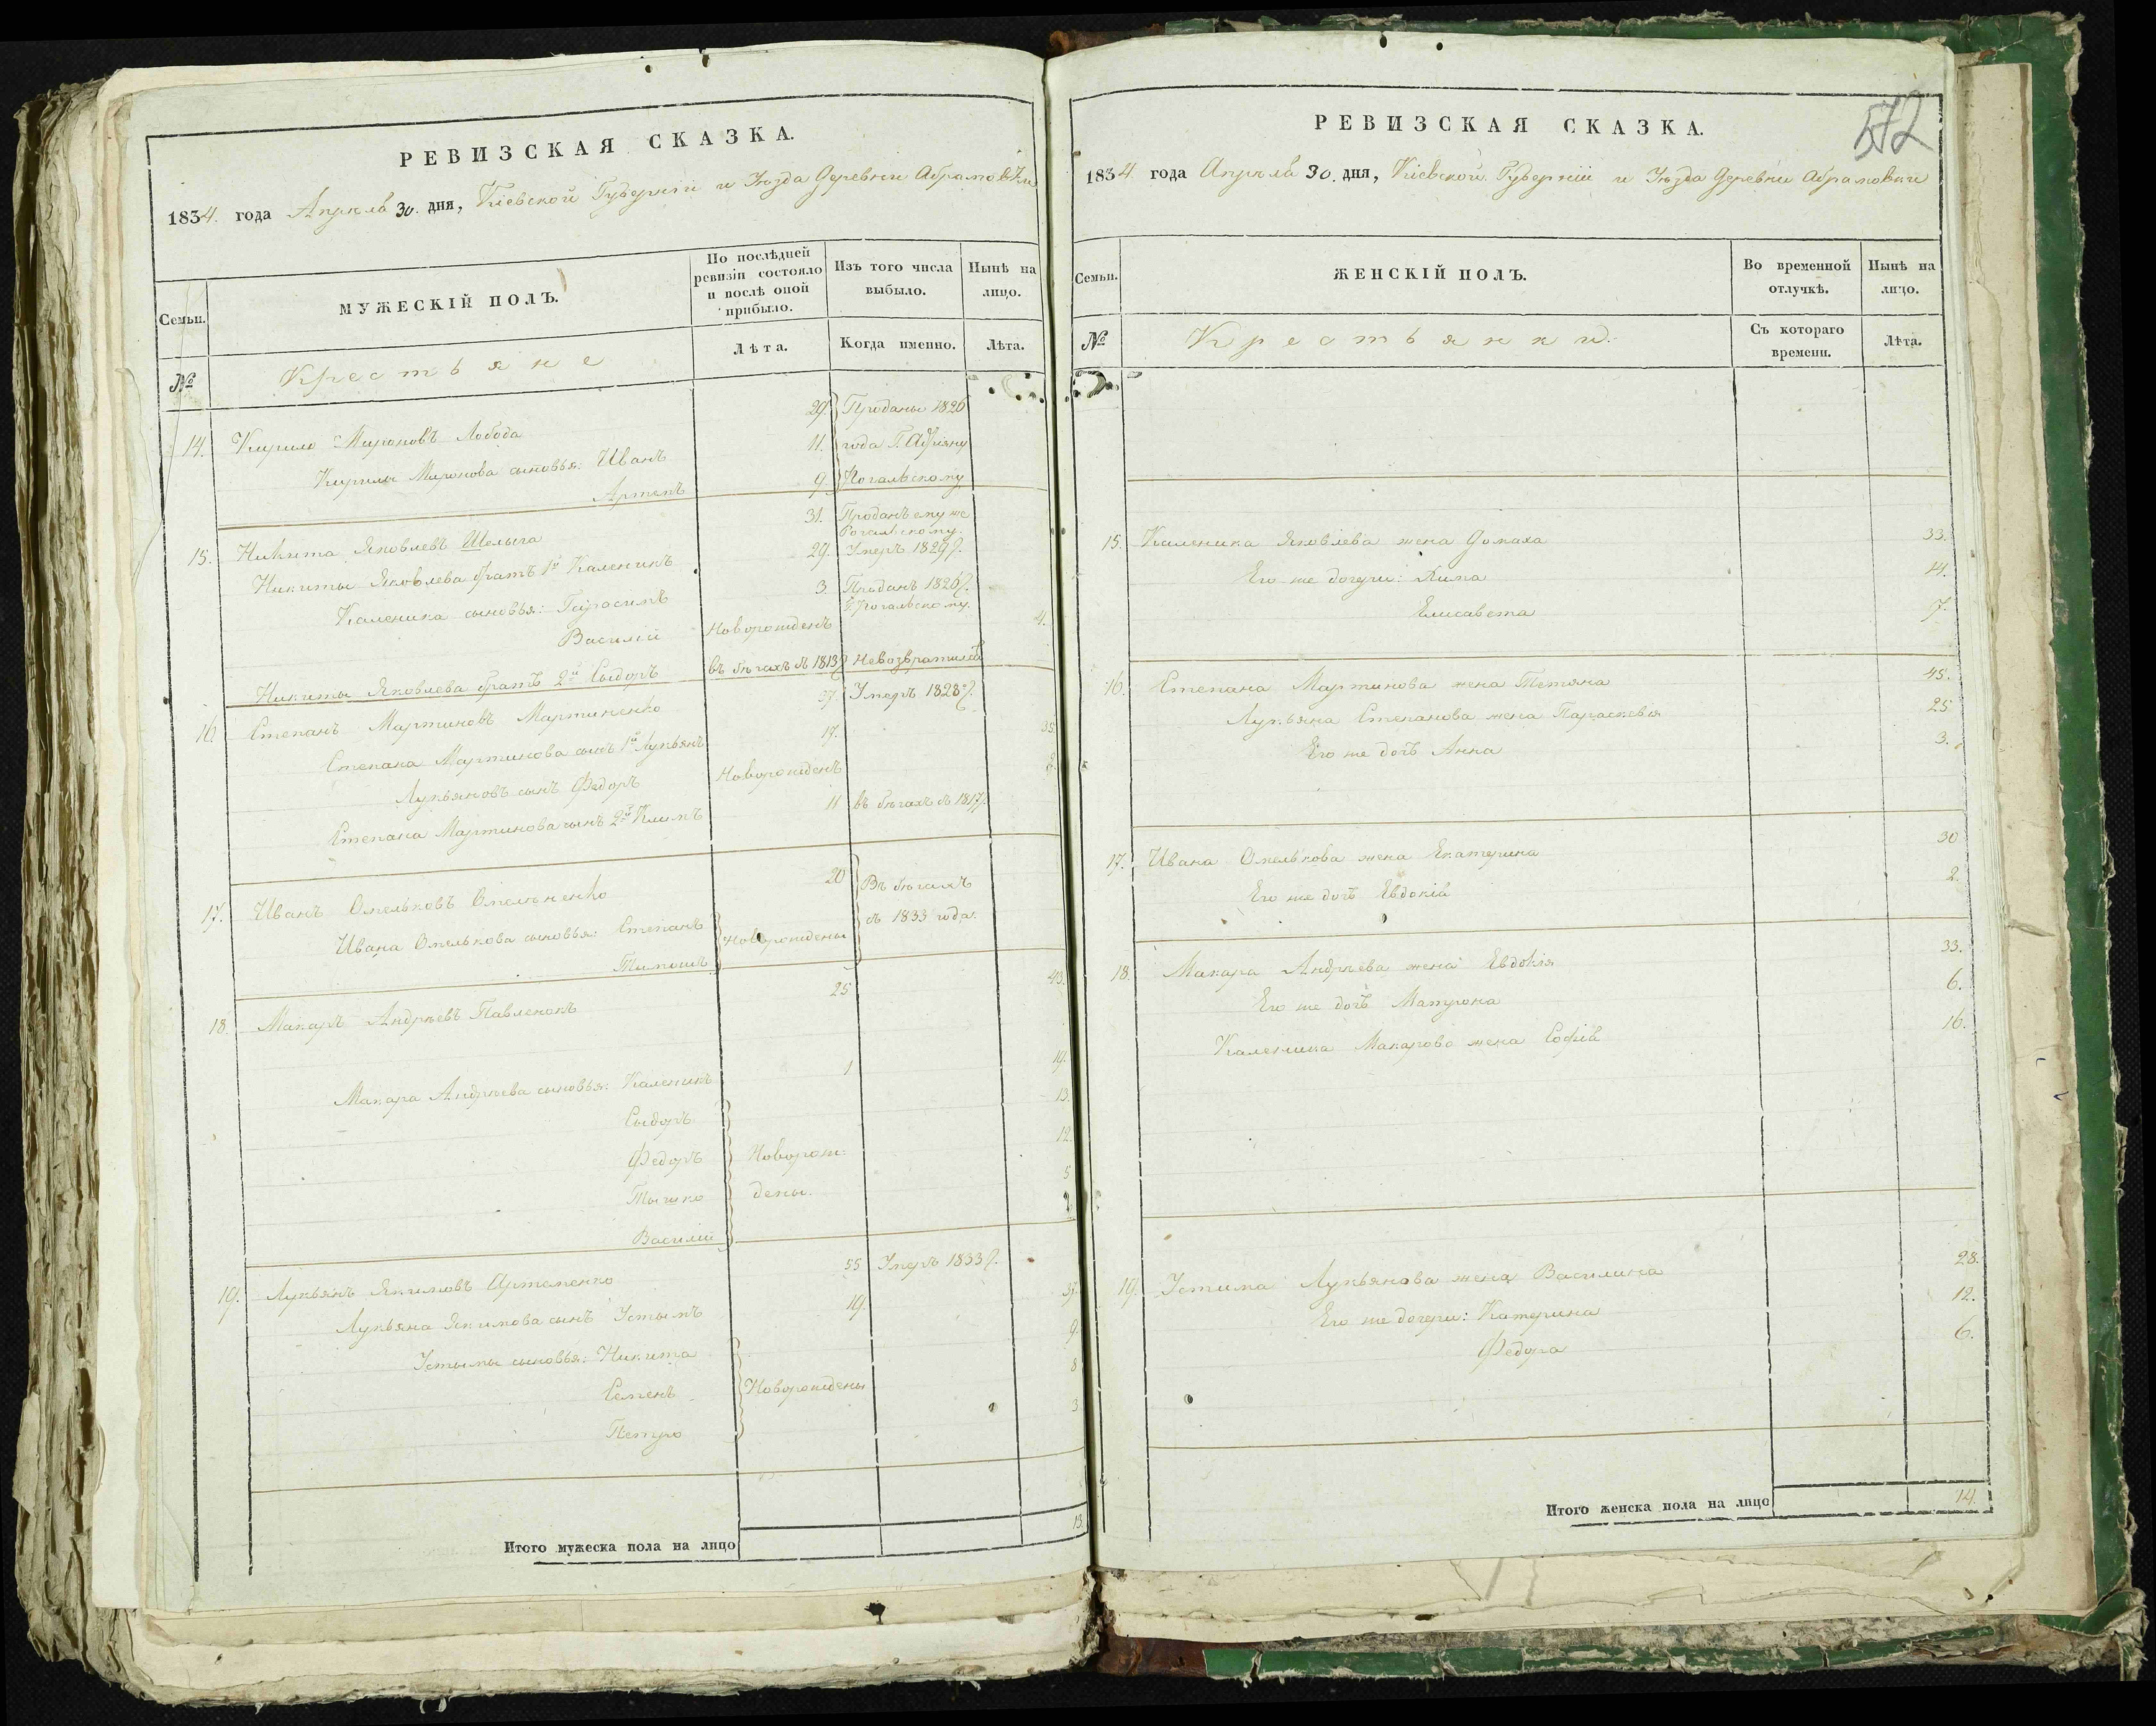 РЕВИЗСКАЯ СКАЗКА.
1834. года Апреля 30. дня, Кіевской Губерніи и Уезда Деревни Абрамовки
Семьи.
МУЖЕСКІЙ ПОЛЪ.
По послѣдней ревизіи состояло и послѣ оной прибыло.
Изъ того числа выбыло.
Нынѣ на лицо.
№
Крестьяне
Лѣта.
Когда именно.
Лѣта.
14. Кирило Мироновъ Лобода 29. Проданы 1826
Кирилы Миронова сыновья: Иванъ 11. года Г.
Артемъ 9 Рогальскому
15. Никита Яковлевъ Шелыга 31. Проданъ ему же Рогальскому.
Никиты Яковлева братъ 1й Каленикъ 29. Умеръ 1829
Каленика сыновья: Герасимъ 3. Проданъ 1826 Рогальскому.
Василій Новорожденъ 4.
Никиты Яковлева братъ 2й Сыдоръ въ бегахъ съ 1813 Невозвратился
16 Степанъ Мартиновъ Мартиненко Умеръ 1828
Степана Мартинова сынъ 1й Лукьянъ 19. 35.
Лукьяновъ сынъ Федоръ Новорожденъ
Степана Мартинова сынъ 2й Климъ 11 въ бегахъ съ 1817
17. Иванъ Омельковъ Омелюненко 20 Въ бегахъ
Ивана Омелькова сыновья: Степанъ Новорождены съ 1833 года.
Тимошъ
18. Макаръ Андреевъ Павленокъ 25 43.
Макара Андреева сыновья: Каленикъ 1 19.
Сыдоръ 13.
Федоръ Новорож: 12.
Тышко дены. 5
Василій
19. Лукьянъ Якимовъ Артеменко 55 Умеръ 1833
Лукьяна Якимова сынъ Устымъ 19.
Устымы сыновья: Никита 9.
Семенъ Новорождены 8
Петро 3
Итого мужеска пола на лицо 13.
572
РЕВИЗСКАЯ СКАЗКА.
1834 года Апреля 30. дня, Кіевской Губерніи и Уезда Деревни Абрамовки
Семьи.
ЖЕНСКІЙ ПОЛЪ.
Во временной отлучкѣ.
Нынѣ на лицо.
№
Крестьянки.
Съ котораго времени.
Лѣта.
15. Каленика Яковлева жена Домаха 33.
Его же дочери: 14.
Елисавета 7.
16. Степана Мартинова жена Тетяна 45.
Лукьяна Степанова жена Параскевія 25
Его же дочь Анна 3.
17. Ивана Омелькова жена Екатерина 30
Его же дочь Евдокія 2.
18. Макара Андреева жена Евдокія 33.
Его же дочь Матрона 6.
Каленика Макарова жена Софія 16.
19. Устима Лукьянова жена Василина 28.
Его же дочери: Катерина 12.
Федора 6.
Итого женска пола на лицо 14.